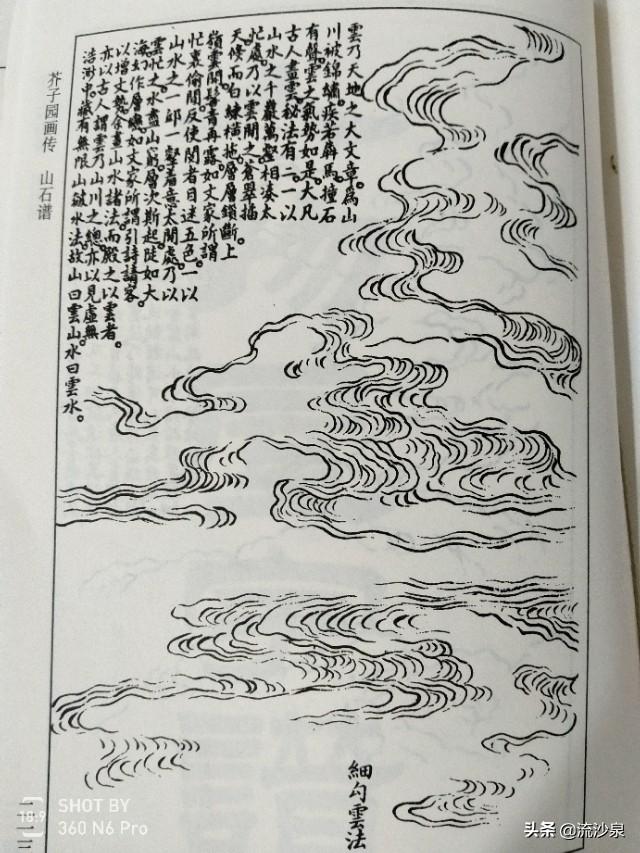 芥子园画传 山石谱
雲乃天地之大文章。為山
川被錦繡。疾若奔馬。撞石
有聲。雲之氣勢如是。大凡
古人畫雲秘法有二。一以
山水之千巖萬壑相凑太
忙處。乃以雲閒之。蒼翠插
天。倏而白練橫拖。層層鎖斷。上
嶺雲開。髻青再露。如文家所謂
忙裏偷閒。反使閱者目迷五色。一以
山水之一邱一壑着意太閒處。乃以
雲忙之。水盡山窮。層次斯起。陡如大
海。幻作層巒。如文家所謂引詩請客。
以增文勢。余畫山水諸法。而殿之以雲者。
亦以古人謂雲乃山川之總。亦以見虛無
浩渺中。藏有無限山皴水法。故山曰雲山。水曰雲水。
細勾雲法
SHOT BY
360 N6 Pro
头条 @流沙泉